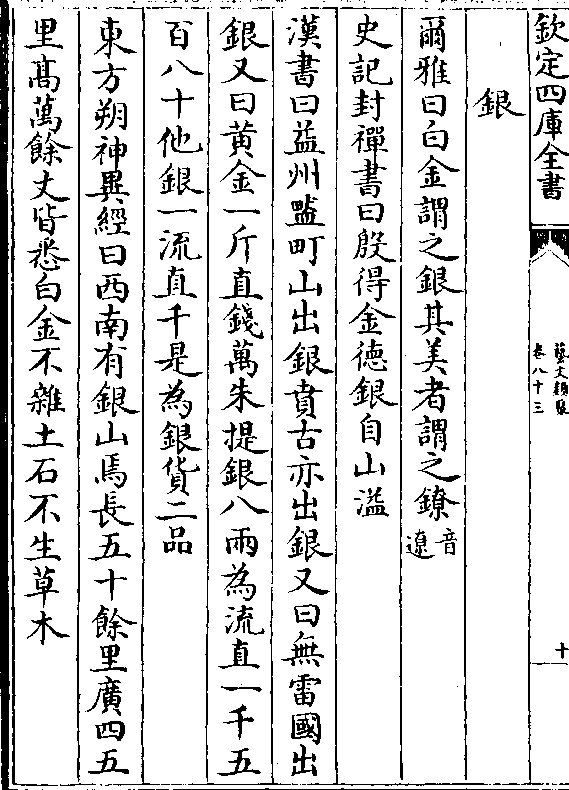 欽定四庫全書
藝文類聚
卷八十三
十
銀
爾雅曰白金謂之銀其美者謂之鐐音遼
史記封禪書曰殷得金徳銀自山溢
漢書曰益州𥂕町山出銀賁古亦出銀又曰無雷國出
銀又曰黄金一斤直錢萬朱提銀八兩為流直一千五
百八十他銀一流直千是為銀貨二品
東方朔神異經曰西南有銀山焉長五十餘里廣四五
里髙萬餘丈皆悉白金不雜土石不生草木